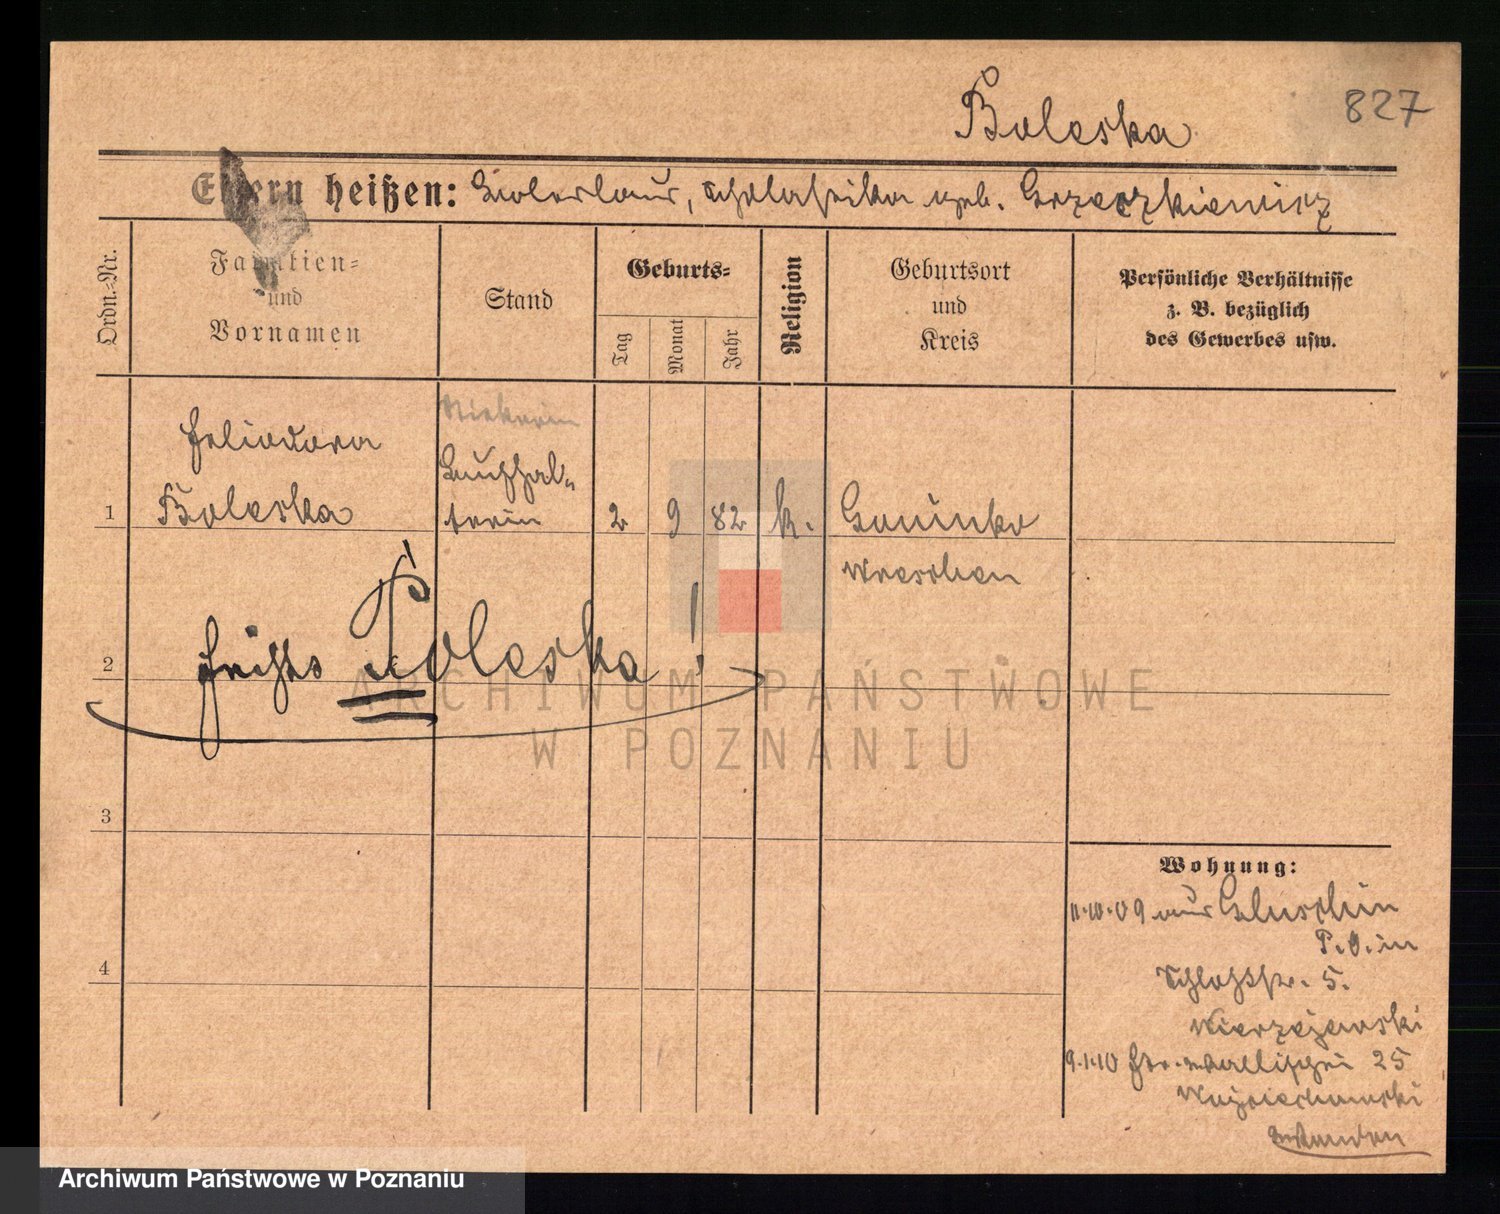 827
Boleska
Eltern heißen: geb. Grzeszkiewicz
Ordn.-Nr.
Familien-
und
Vornamen
Stand
Geburts-
Tag
Monat
Jahr
Religion
Geburtsort
und
Kreis
Persönliche Verhältnisse
z. B. bezüglich
des Gewerbes usw.
Heliodora
Buchhal-
1 Boleska terin 2 9 82 k. Gominko
Wreschen
2 heißt Poleska!
ARCHIWUM PAŃSTWOWE
W POZNANIU
3
Wohnung:
11.10.09 aus Gluschin
P.O. in
4
Schloßstr. 5.
Wierzejewski
9.1.10 Gr. 25
Wojciechowski
Archiwum Państwowe w Poznaniu